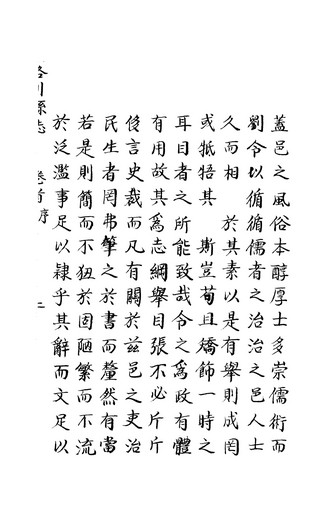 蓋邑之風俗本醇厚士多崇儒術而
劉令以循循儒者之治治之邑人士
久而相 於其素以是有舉則成罔
或牴牾其 斯豈苟且矯飾一時之
耳目者之所能致哉令之為政有體
有用故其為志綱舉目張不必斤斤
侈言史裁而凡有關於茲邑之吏治
民生者罔弗筆之於書而釐然有當
若是則簡而不狃於固陋繁而不流
於泛濫事足以隸乎其辭而文足以
洛川縣志 卷首序 二